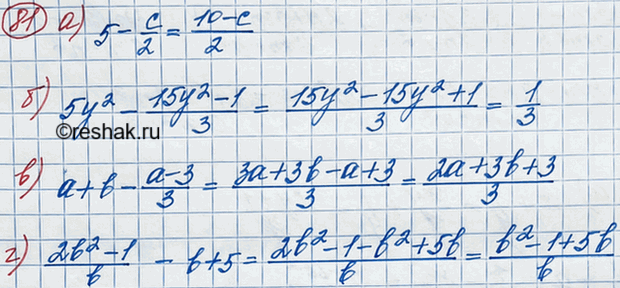 81 а) 5 - c/2 = (10-c)/2
б) 5y² - (15y²-1)/3 = (15y²-15y²+1)/3 = 1/3
©reshak.ru
в) a+b - (a-3)/3 = (3a+3b-a+3)/3 = (2a+3b+3)/3
г) (2b²-1)/b - b+5 = (2b²-1-b²+5b)/b = (b²-1+5b)/b